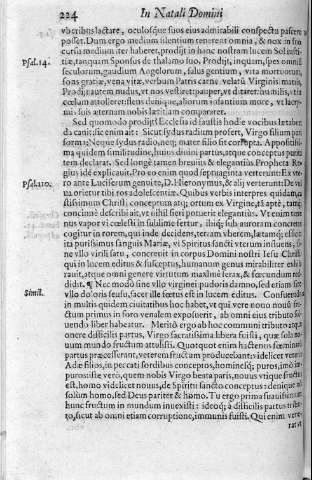 224 In Natali Domini
vberibus lactare, oculosque suos eius admirabili conspectu pascere
posset. Dum ergo medium silentium tenerent omnia, & nox in suo
cursu medium iter haberet, prodijt in hanc nostram lucem Sol iusti-
Psal.14. tiæ, tanquam Sponsus de thalamo suo. Prodijt, inquam, spes omniũ
seculorum, gaudium Angelorum, salus gentium, vita mortuorum,
fons gratiæ, vena vitæ, verbum Patris carne velatũ Virginis matris
Prodijt autem nudus, vt nos vestiret: pauper, vt ditaret: humilis, vt a
cœlum attolleret: flens denique, aliorum infantium more, vt lacry-
mis suis æternam nobis lætitiam compararet.
Sed quomodo prodijt? Ecclesia id faustis hodie vocibus lætabun-
da canit: sic enim ait: Sicut sydus radium profert, Virgo filium pari
forma: Neque sydus radio, neq; mater filio fit corrupta. Appositissi-
ma quidem similitudine, huius diuini partus, atque conceptus purita-
tem declarat. Sed longè tamen breuius & elegantius Propheta Re-
gius idē explicauit. Pro eo enim quod septuaginta verterunt: Ex vte-
Psal.110. ro ante Luciferum genui te, D. Hieronymus, & alij verterunt: De vul
ua orietur tibi ros adolescentiæ. Quibus verbis interpres quidam
stissimum Christi conceptum atq; ortum ex Virgine, tã aptè, tamq;
concinnè describi ait, vt nihil fieri potuerit elegantius. Vt enim ten-
nus vapor vi cœlesti in sublime fertur, ibiq; sub auroram concrenit
cogitur in rorem, & inde decidens, terram vberem, lætamq; efficit:
ita purissimus sanguis Mariæ, vi Spiritus sancti vterum influens, si-
ne vllo virili satu, concreuit in corpus Domini nostri Iesu Christi
qui in lucem editus & susceptus, humanum genus mirabiliter exhi-
rauit, atque omni genere virtutum maximè ferax, & fœcundum red-
didit. ¶ Nec modò sine vllo virginei pudoris damno, sed etiam sine
Simil. vllo doloris sensu, sacer ille fœtus est in lucem editus. Consuetudo
in multis quidem ciuitatibus hoc habet, vt qui vere nouo nouũ fru-
ctum primus in foro venalem exposuerit, ab omni eius tributo sol-
uendo liber habeatur. Meritò ergo ab hoc communi tributo atque
onere difficilis partus, Virgo sacratissima libera fuisti, quæ sola no-
uum mundo fructum attulisti. Quotquot enim hactenus fœminarum
partus præcesserant, veterem fructum producebant: videlicet veteris
Adæ filios, in peccati sordibus conceptos, hominesq; puros, imò im-
puros: iste verò, quem nobis Virgo beata paris, nouus vtique fructus
est, homo videlicet nouus, de Spiritu sancto conceptus: denique nõ
solum homo, sed Deus pariter & homo. Tu ergo prima suauissimum
hunc fructum in mundum inuexisti: ideoq; à difficilis partus tribu-
to, sicut ab omni etiam corruptione, immunis fuisti. Qui enim vete-
rat vt